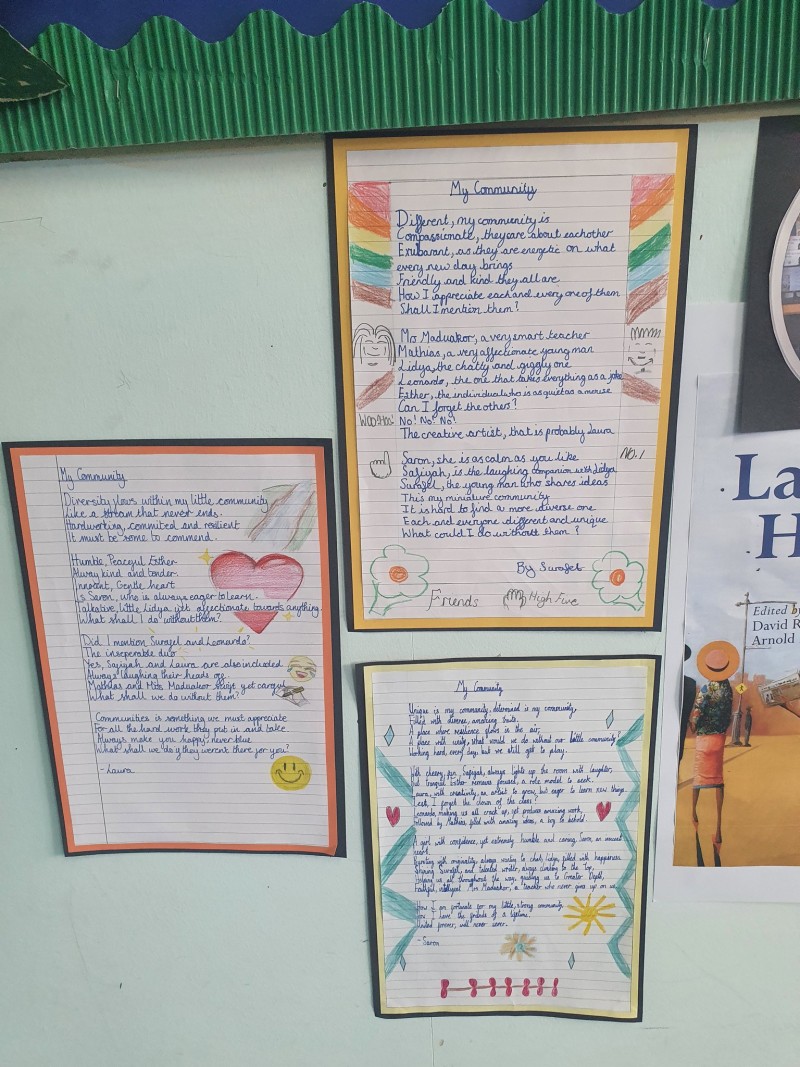 My Community
Different, my community is
Compassionate, they care about eachother
Exubarant, as they are energetic on what
every new day brings
Friendly and kind they all are
How I appreciate each and every one of them
Shall I mention them?
Mrs Maduakor, a very smart teacher
Mathias, a very affectionate young man
Lidya, the chatty and giggly one
Leonardo, the one that takes everything as a joke
Esther, the individual who is as quiet as a mouse
Can I forget the others?
No! No! No!
The creative artist, that is probably Laura
Saron, she is as calm as you like
Safiyah, is the laughing companion with Lidya
Surafel, the young man who shares ideas
This my miniature community
It is hard to find a more diverse one
Each and everyone different and unique
What could I do without them?
By Surafel
Friends
High Five
NO.1
My Community
Diversity flows within my little community
Like a stream that never ends.
Hardworking, commited and resilient
It must be some to commend.
Humble, Peaceful Esther
Alway kind and tender.
Innocent, Gentle heart
Is Saron, who is always eager to learn.
Talkative, little Lidya still affectionate towards anything.
What shall we do without them?
Did I mention Surafel and Leonardo?
The inseperable duo
Yes, Safiyah and Laura are also included
Always laughing their heads off.
Mathias and Mrs Maduakor swift yet careful
What shall we do without them?
Communities is something we must appreciate
For all the hard work they put in and take.
Always make you happy, never blue
What shall we do they werent there for you?
- Laura
My Community
Unique is my community, determined is my community,
Filled with diverse, amazing traits.
A place where resilience glows in the air,
A place with unity, what would we do without our little community?
Working hard, every day, but we still get to play.
With cheery, fun, Safiyah, always lights up the room with laughter,
But tranquil Esther remains focused, a role model to seek.
Laura, with creativity, an artist to grow, but eager to learn new things.
I forget the clown of the class?
Leonardo, making us all crack up, yet produces amazing work,
Followed by Mathias filled with amazing ideas, a boy to behold.
A girl with confidence, yet extremely humble and caring, Saron, an unused
Bursting with originality, always wanting to chat, Lidya, filled with happiness
Surafel, and talented writer, always climbing to the Top,
us all throughout the way, guiding us to Greater Depth,
Faithful, intelligent Mrs Maduakor, a teacher who never gives up on us.
How I am fortunate for my little, strong community,
How I have the friends of a lifetime.
United forever, will never sever.
- Saron
La
H
Edited by
David R
Arnold